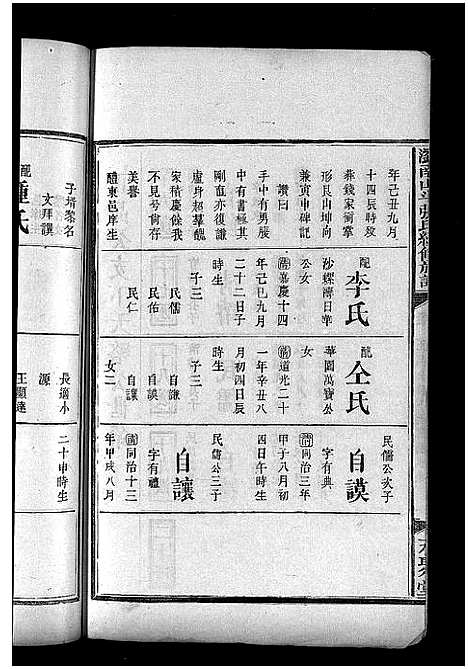 年己丑九月
十四辰時歿
形艮山坤向
兼寅申碑記
贊曰
中有男勝
中有書極其
剛南亦復謙
虛身超羣醜
家積慶餘我
不見兮尚存
美譽
醴東邑庠生
子壻黎名
文拜譔
配李氏
沙螺濟日華
公女
清嘉慶十四
年己巳九月
二十二日子
時生
子三
民儒
民佑
民仁
配仝氏
華園萬寶公
女
清道光二十
一年辛丑八
月初四日辰
時生
子三
自謙
自謨
自讓
女二
長適小
源
王顯達
民儒公次子
自謨
字有典
清同治三年
甲子八月初
四日午時生
民儒公三子
自讓
字有禮
清同治十三
年甲戌八月
二十申時生